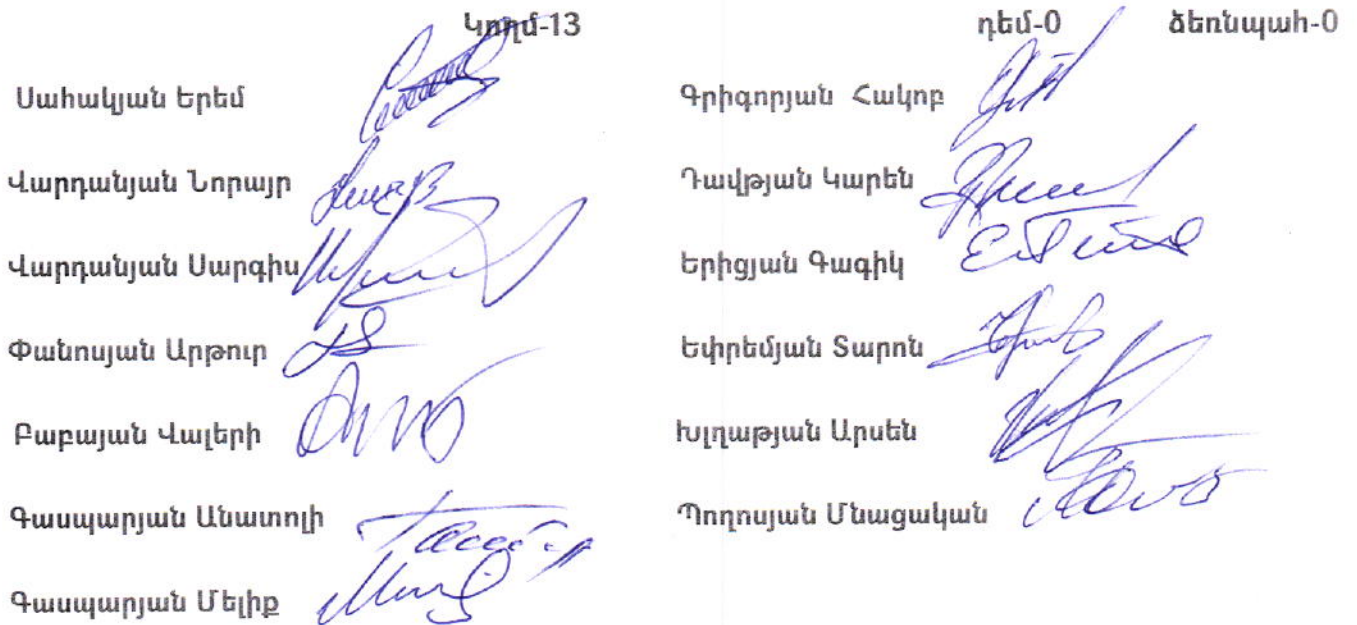 Կողմ-13 դեմ-0 ձեռնպահ-0
Սահակյան Երեմ
Վարդանյան Նորայր
Վարդանյան Սարգիս
Փանոսյան Արթուր
Բաբայան Վալերի
Գասպարյան Անատոլի
Գասպարյան Մելիք
Գրիգորյան Հակոբ
Դավթյան Կարեն
Երիցյան Գագիկ
Եփրեմյան Տարոն
Խլղաթյան Արսեն
Պողոսյան Մնացական